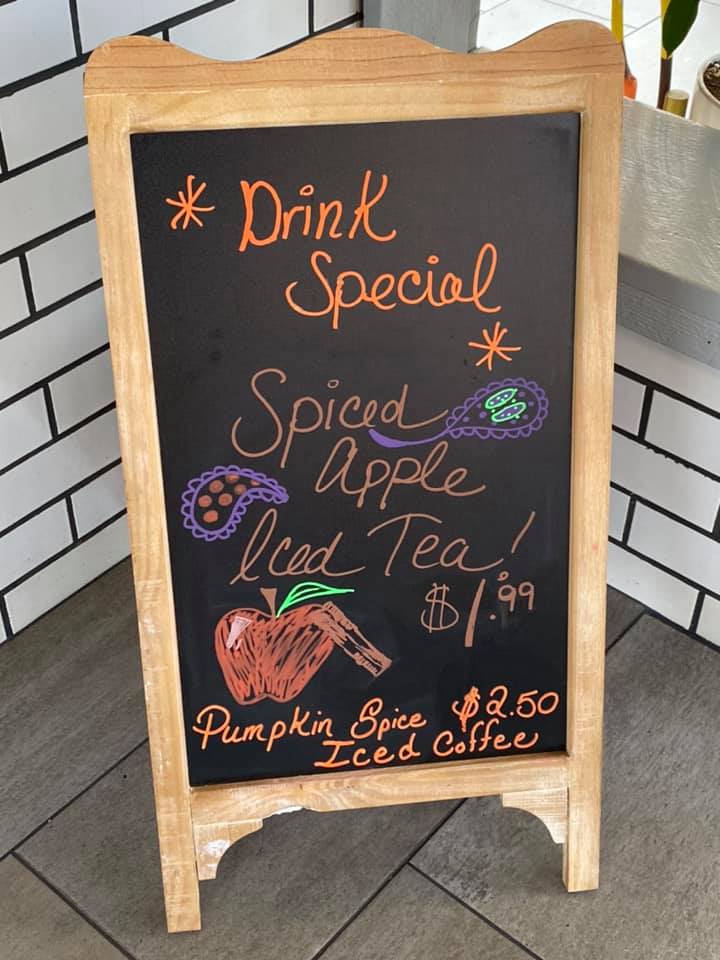 * Drink
Special *
Spiced
Apple
Iced Tea!
$1.99
Pumpkin Spice $2.50
Iced Coffee